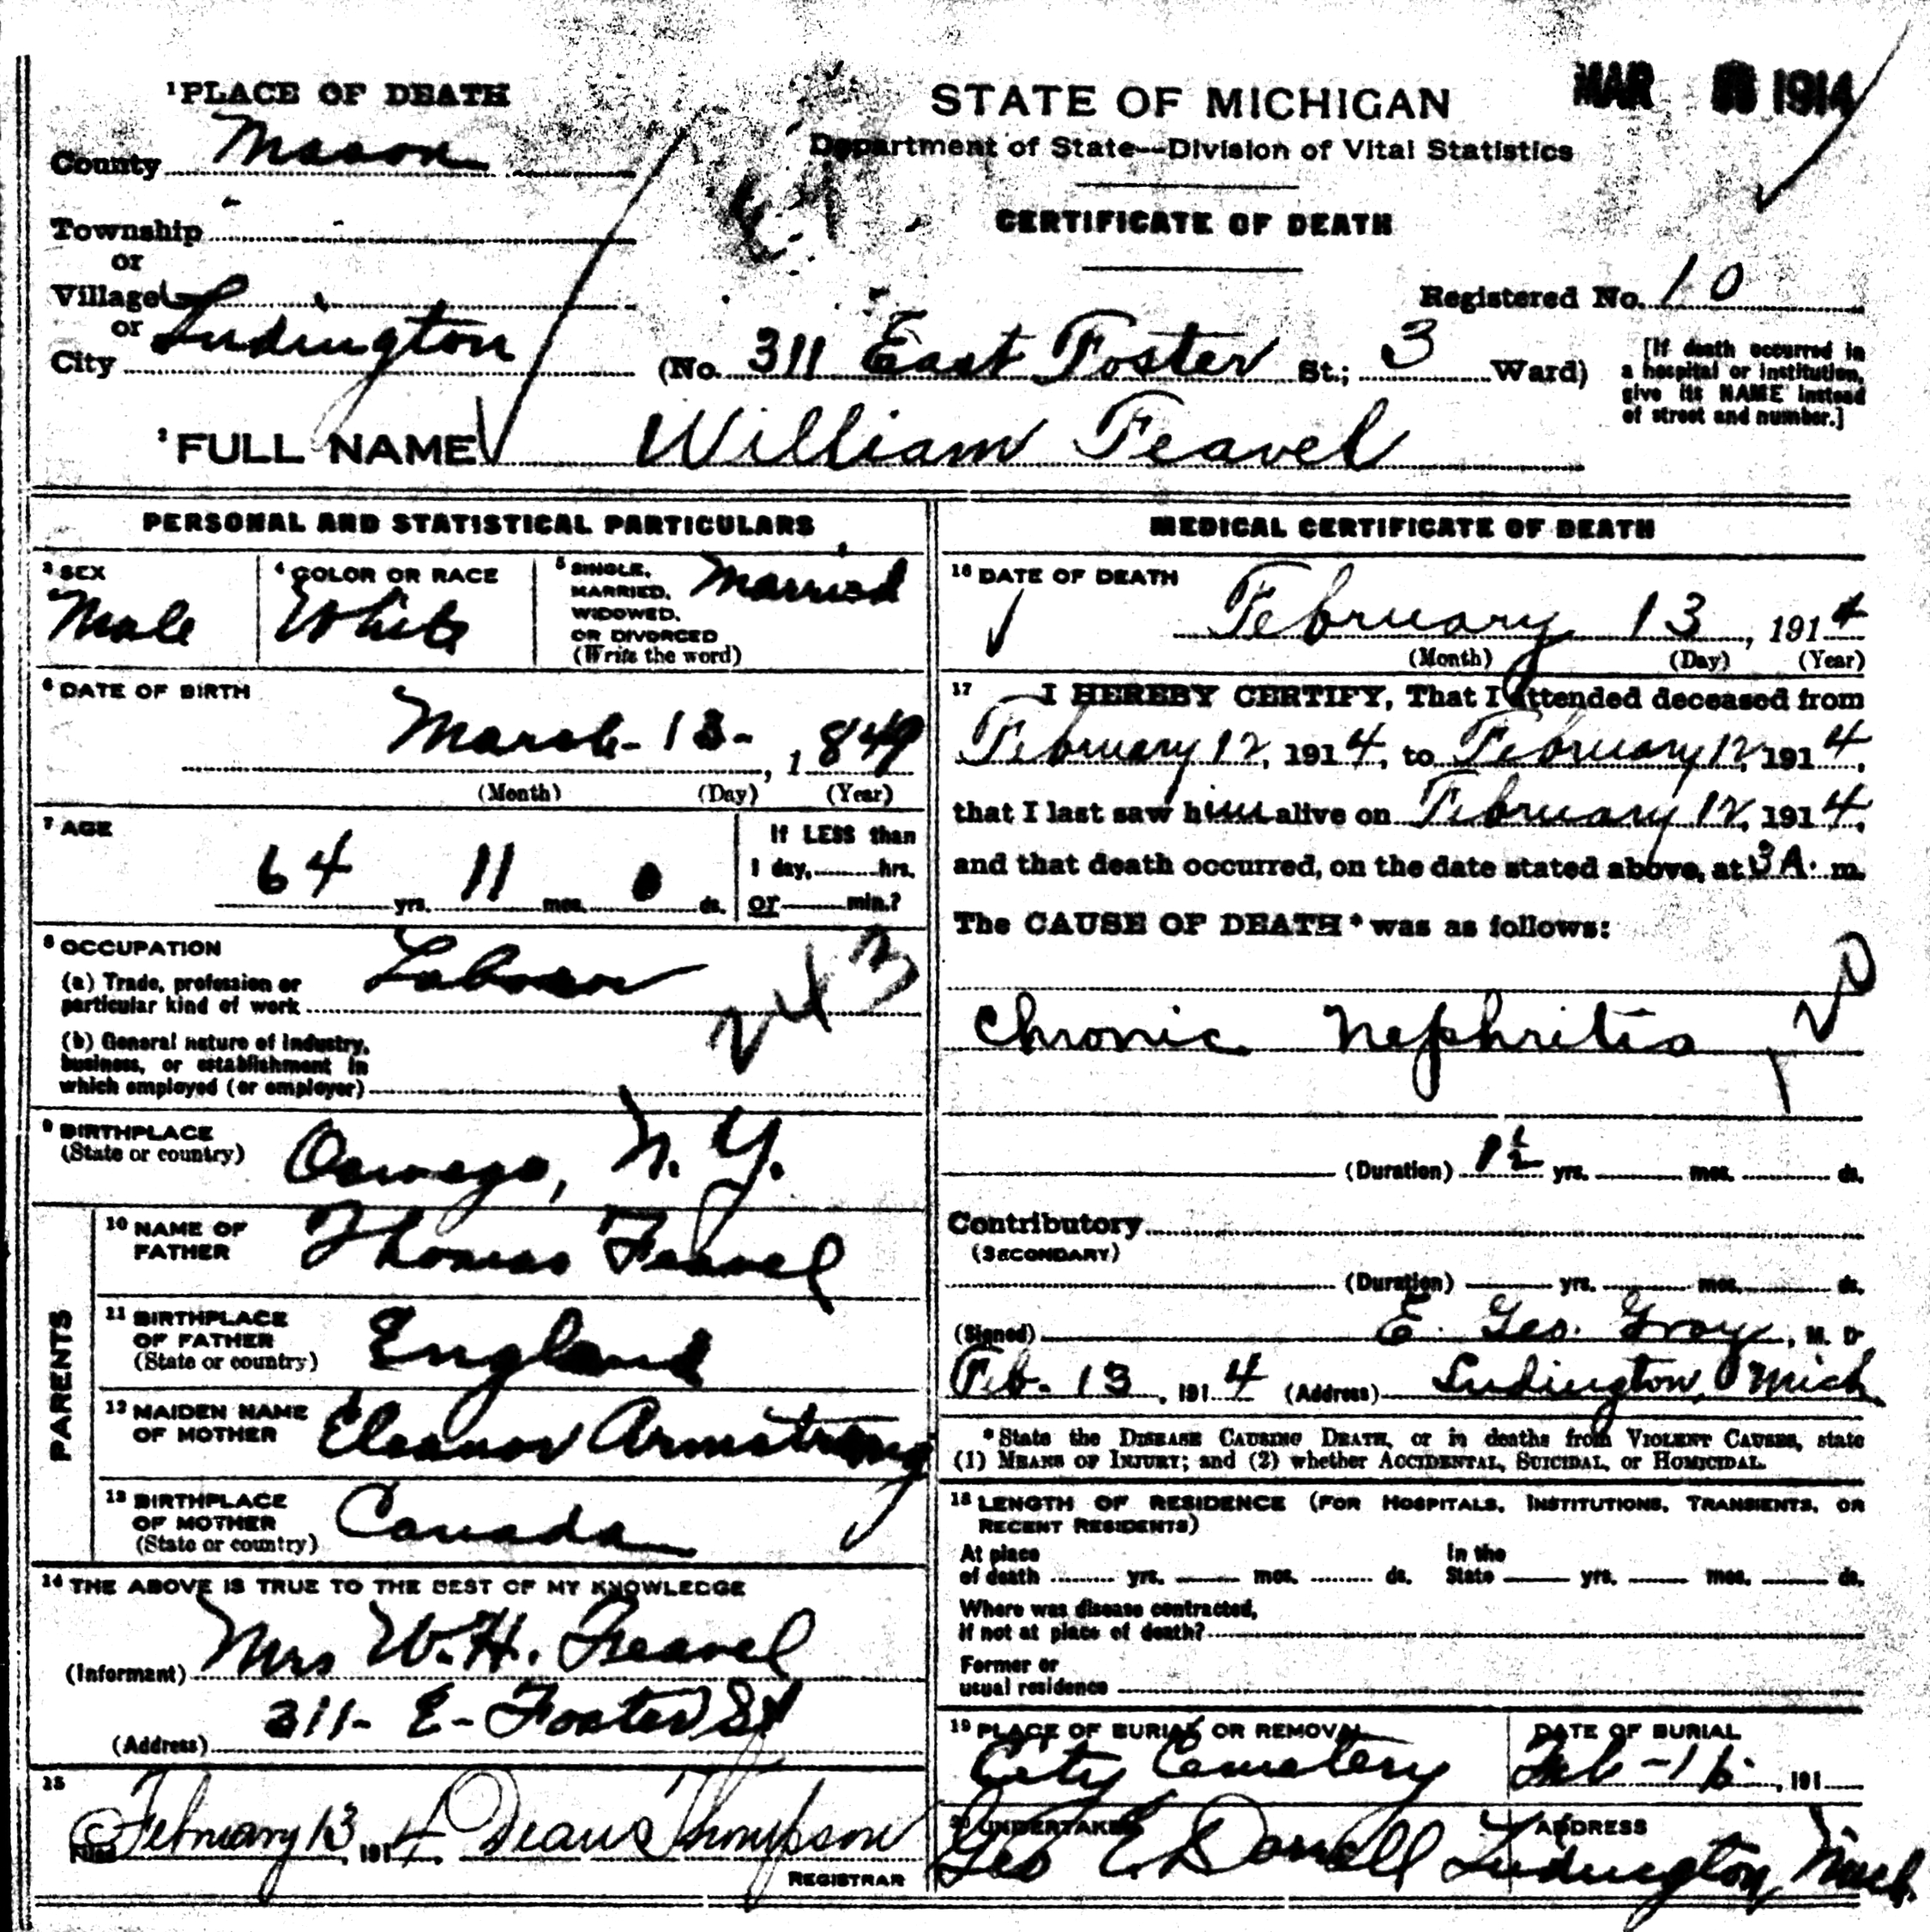 ¹PLACE OF DEATH
County Mason
Township
or
Village
or
City Ludington
STATE OF MICHIGAN
Department of State—Division of Vital Statistics
CERTIFICATE OF DEATH
MAR 1914
Registered No. 10
(No. 311 East Foster St.; 3 Ward)
[If death occurred in
a hospital or institution,
give its NAME instead
of street and number.]
²FULL NAME William Feavel
PERSONAL AND STATISTICAL PARTICULARS
³SEX
Male
⁴COLOR OR RACE
White
⁵SINGLE,
MARRIED,
WIDOWED,
OR DIVORCED
(Write the word)
Married
⁶DATE OF BIRTH
March - 13 - , 1849
(Month) (Day) (Year)
⁷AGE
64 yrs. 11 mos. 0 ds.
If LESS than
1 day, hrs.
or min.?
⁸OCCUPATION
(a) Trade, profession or
particular kind of work Laborer
(b) General nature of industry,
business, or establishment in
which employed (or employer)
243
⁹BIRTHPLACE
(State or country)
Oswego, N.Y.
PARENTS
¹⁰NAME OF
FATHER
Thomas Feavel
¹¹BIRTHPLACE
OF FATHER
(State or country)
England
¹²MAIDEN NAME
OF MOTHER
Eleanor Armstrong
¹³BIRTHPLACE
OF MOTHER
(State or country)
Canada
¹⁴THE ABOVE IS TRUE TO THE BEST OF MY KNOWLEDGE
(Informant) Mrs W.H. Feavel
(Address) 311- E- Foster St
15
Filed February 13, 1914. Thompson
REGISTRAR
MEDICAL CERTIFICATE OF DEATH
¹⁶DATE OF DEATH
February 13, 1914
(Month) (Day) (Year)
17 I HEREBY CERTIFY, That I attended deceased from
February 12, 1914, to February 12, 1914,
that I last saw him alive on February 12, 1914,
and that death occurred, on the date stated above, at 3 A. m.
The CAUSE OF DEATH* was as follows:
Chronic Nephritis
(Duration) 1½ yrs. mos. ds.
Contributory
(SECONDARY)
(Duration) yrs. mos. ds.
(Signed) E. Geo. Gray, M. D.
Feb. 13, 1914 (Address) Ludington, Mich
*State the DISEASE CAUSING DEATH, or in deaths from VIOLENT CAUSES, state
(1) MEANS OF INJURY; and (2) whether ACCIDENTAL, SUICIDAL, or HOMICIDAL.
¹⁸LENGTH OF RESIDENCE (FOR HOSPITALS, INSTITUTIONS, TRANSIENTS, OR
RECENT RESIDENTS)
At place
of death yrs. mos. ds.
In the
State yrs. mos. ds.
Where was disease contracted,
if not at place of death?
Former or
usual residence
¹⁹PLACE OF BURIAL OR REMOVAL
City Cemetery
DATE OF BURIAL
Feb - , 191
²⁰UNDERTAKER
Geo E. Dorrell
ADDRESS
Ludington, Mich.